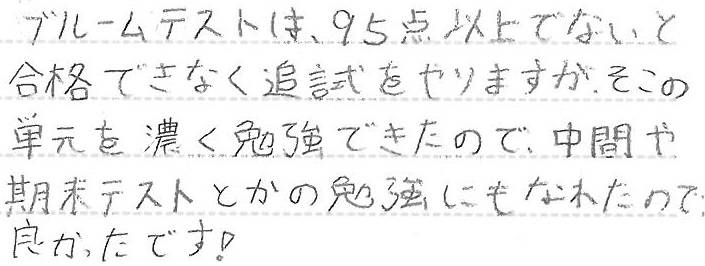 ブルームテストは、95点以上でないと
合格できなく追試をやりますが、そこの
単元を濃く勉強できたので、中間や
期末テストとかの勉強にもなれたので、
良かったです!